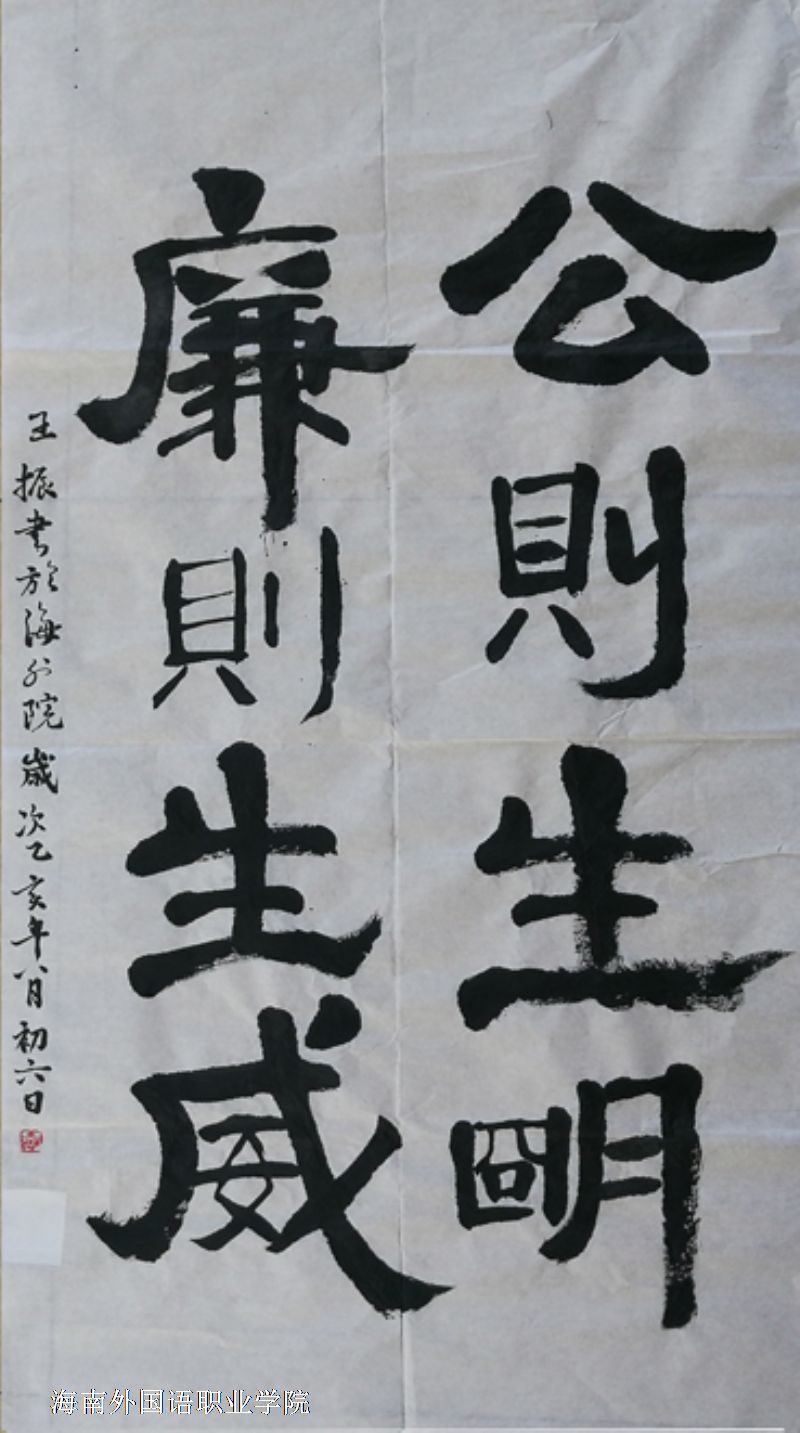 公則生明
廉則生威
王振書於海外院歲次乙亥年八月初六日
海南外国语职业学院